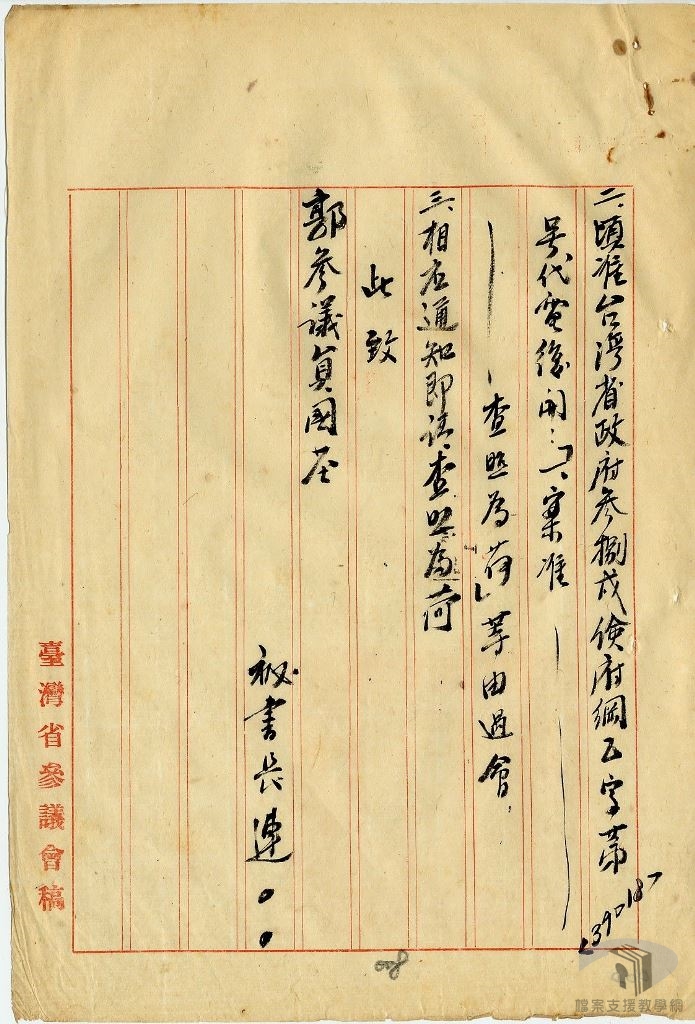 二、頃准台灣省政府參捌戌儉府綱乙字第
號代電後開:「一、案准
查照為荷」等由過會,
三、相應通知即請查照為荷
此致
郭參議員國基
秘書長連。。
臺灣省參議會稿
檔案支援教學網